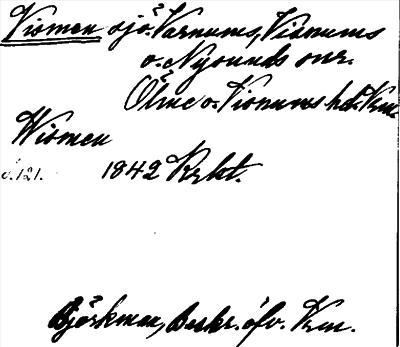 Vismen sjö. Varnums, Visnums
o. Nysunds snr.
Ölme o. Visnums hd. Vrm.
Wismen
s. 121. 1842 Rzkt.
Björkman, Beskr. öfv. Vrm.